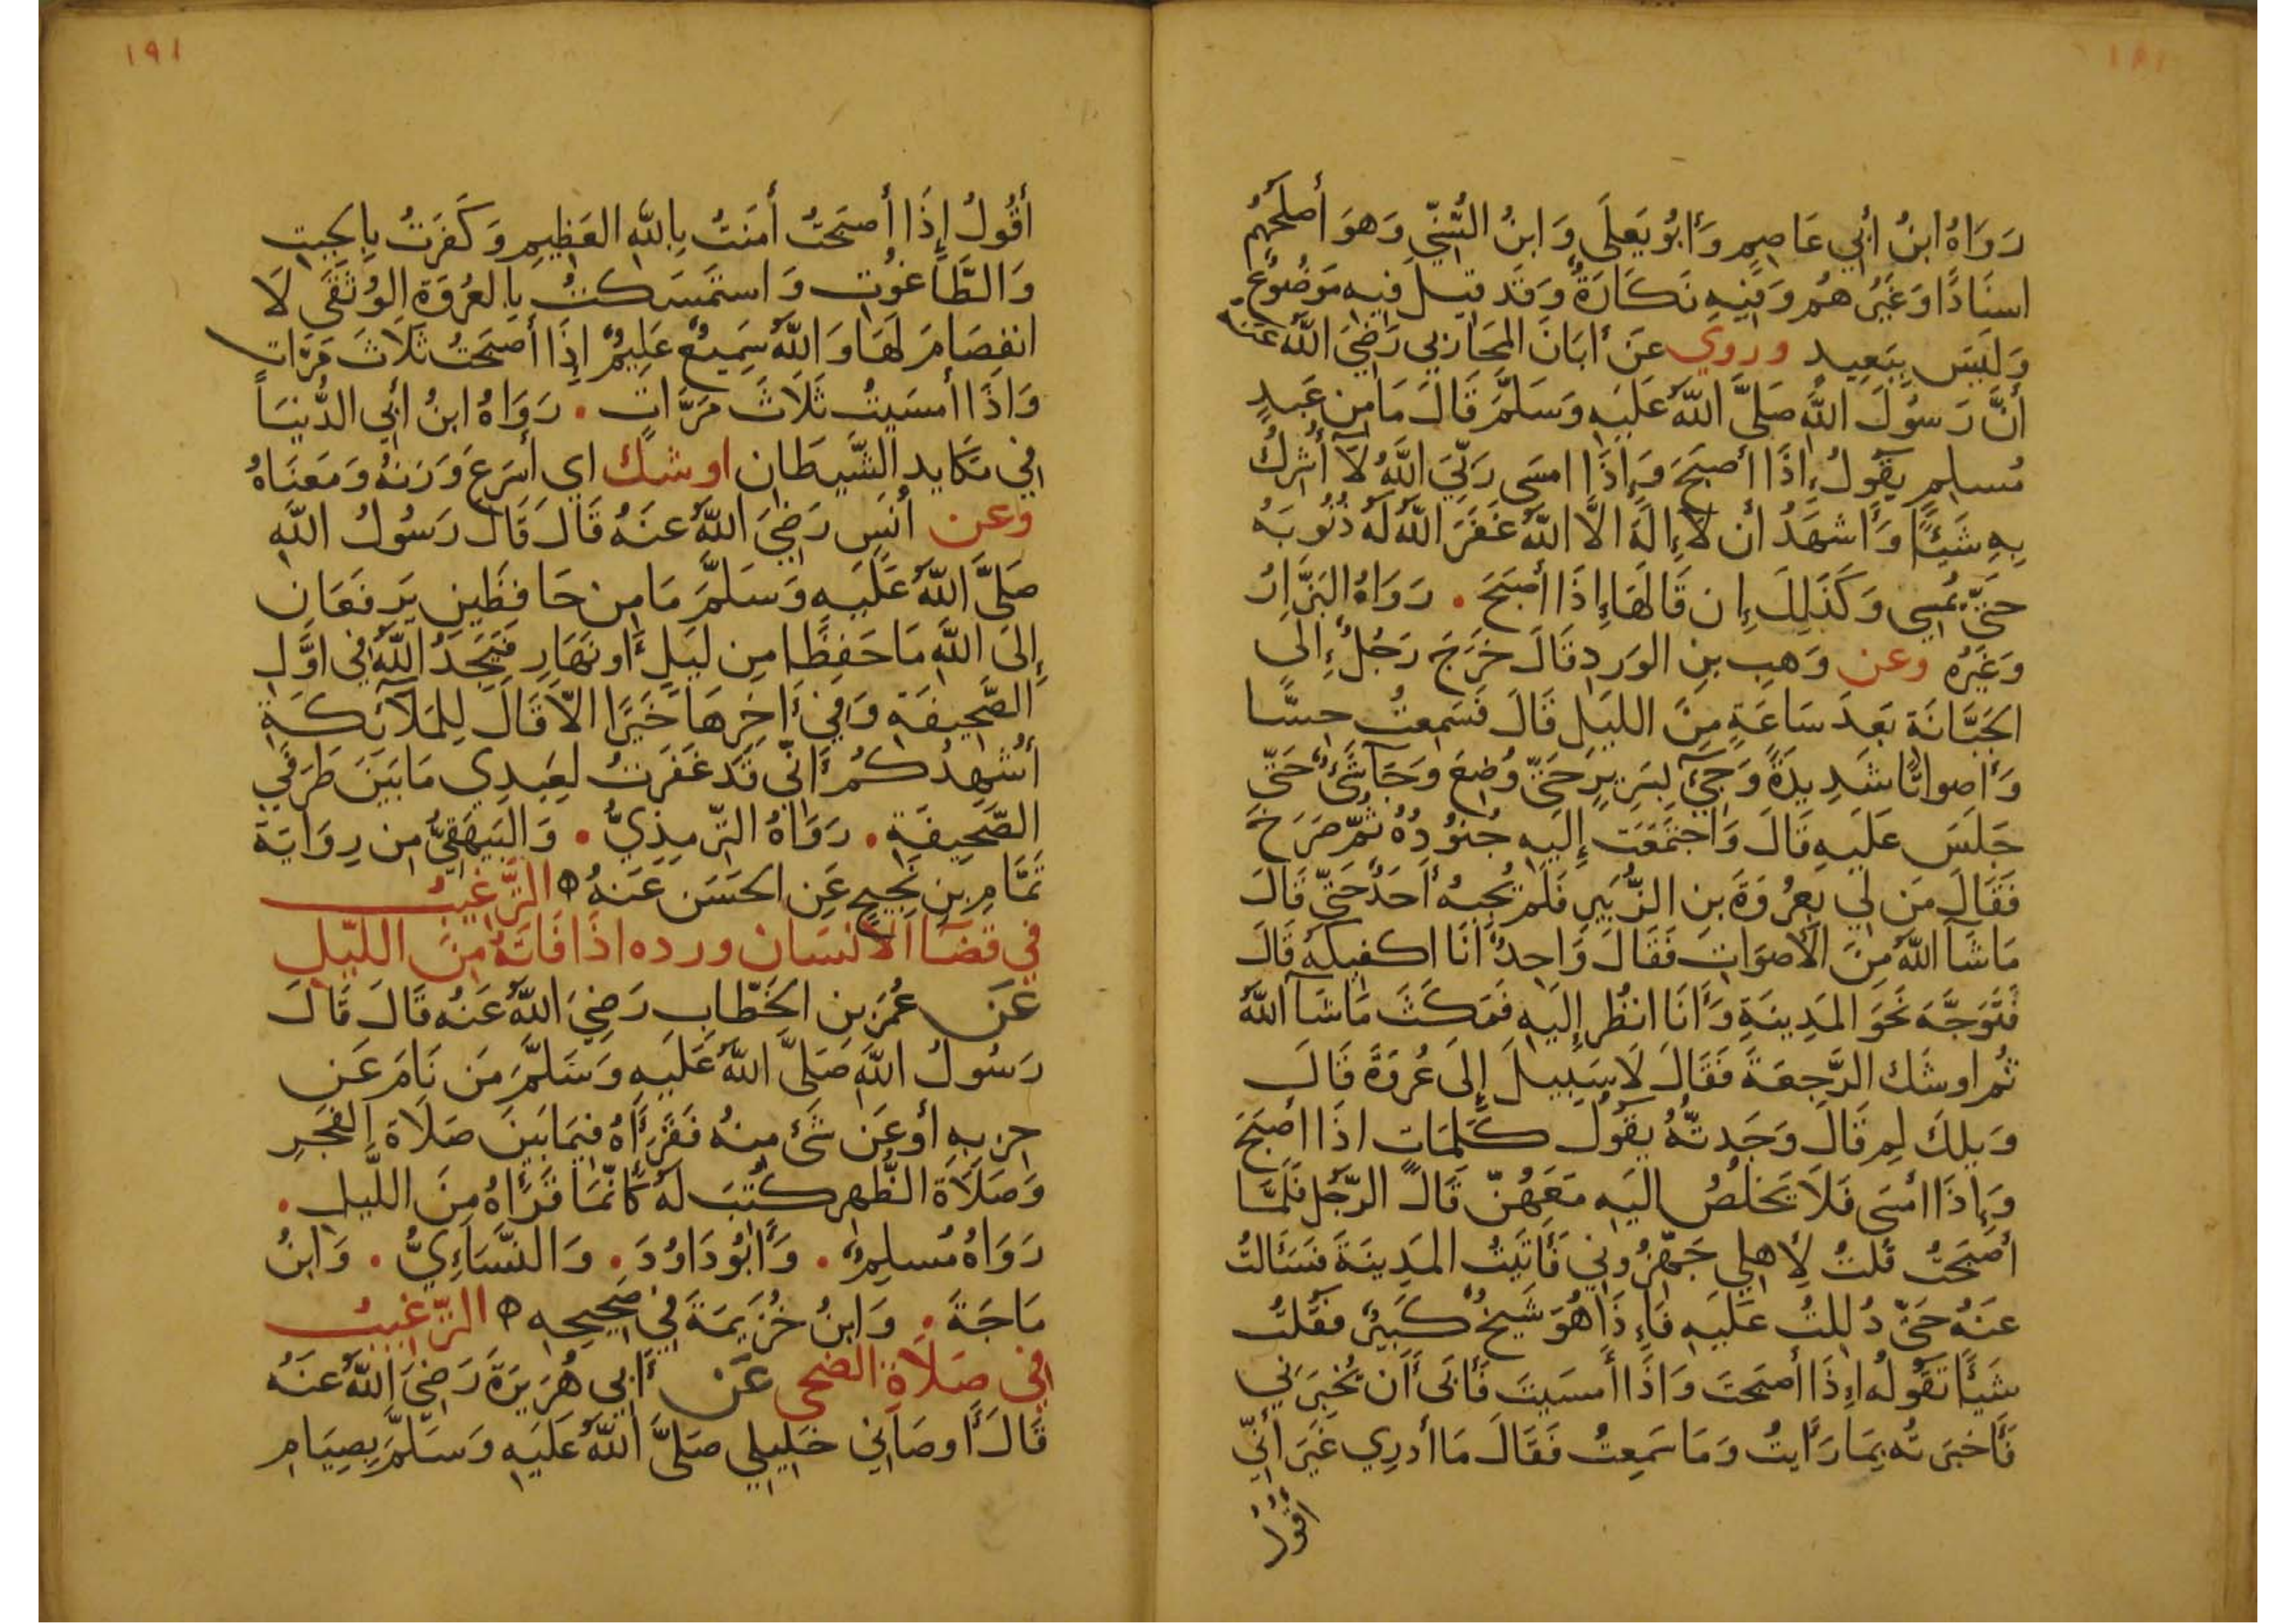 رَوَاهُ ابنُ أبي عَاصِمٍ وَأَبُو يَعلَى وَابنُ السُّنِّي وَهوَ أصلَحُهُم
اسنَادًا وَغَيرُهُم وَفِيهِ نَكَارَةٌ وَقَد قِيلَ فِيهِ مَوضُوعٌ
وَلَيسَ بِبَعِيدٍ وروي عَن أبَانَ المُحَارِبي رَضِيَ اللَّهُ عَنهُ
أنَّ رَسُولَ اللَّهِ صَلَّى اللَّهُ عَلَيهِ وَسَلَّمَ قَالَ مَا مِن عَبدٍ
مُسلِمٍ يَقُولُ إِذَا أصبَحَ وَإِذَا امسَى رَبِّيَ اللَّهُ لَا أُشرِكُ
بِهِ شَيئًا وَأَشهَدُ أن لَا إِلَهَ الَّا اللَّهُ غَفَرَ اللَّهُ لَهُ ذُنُوبَهُ
حَتَّى يُمسِي وَكَذَلِكَ إِن قَالَهَا إِذَا أصبَحَ . رَوَاهُ البَزَّارُ
وَغَيرُهُ وعن وَهبِ بنِ الوَردِ قَالَ خَرَجَ رَجُلٌ إِلَى
الجَبَّانَةِ بَعدَ سَاعَةٍ مِنَ اللَّيلِ قَالَ فَسَمِعتُ حِسًّا
وَأَصواتًا شَدِيدَةً وَجِيءَ بِسَرِيرٍ حَتَّى وُضِعَ وَجَآ شَيءٌ حَتَّى
جَلَسَ عَلَيهِ قَالَ وَاجتَمَعَت إِلَيهِ جُنُودُهُ ثُمَّ صَرَخَ
فَقَالَ مَن لِي بِعُروَةَ بنِ الزُّبَيرِ فَلَم يُجِبهُ أحَدٌ حَتَّى قَالَ
مَا شَآ اللَّهُ مِنَ الأَصوَاتِ فَقَالَ وَاحِدٌ أنَا اكفِيكَهُ قَالَ
فَتَوَجَّهَ نَحوَ المَدِينَةِ وَأَنَا انظُر إِلَيهِ فَمَكَثَ مَا شَآ اللَّهُ
ثُم اوشَك الرَّجعَةَ فَقَالَ لَا سَبِيلَ إِلَى عُروَةَ قَالَ
وَيلَكَ لِم قَالَ وَجَدتُّهُ يَقُولُ كَلِمَاتٍ اذَا اصبَحَ
وَإِذَا امسَى فَلَا يَخلُصُ اليَهِ مَعَهُنَّ قَالَ الرَّجُل فَلَمَّا
أصبَحتُ قُلتُ لِأَهلِي جَهِّزُونِي فَأَتَيتُ المَدِينَةَ فَسَأَلتُ
عَنهُ حَتَّى دُلِلتُ عَلَيهِ فَإِذَا هُوَ شَيخٌ كَبِيرٌ فَقُلتُ
شَيئًا تَقُولُهُ إِذَا أصبَحتَ وَاذَا أمسَيتَ فَأَبَى أَن يُخبِرَنِي
فَأَخبَرتُه بِمَا رَأَيتُ وَمَا سَمِعتُ فَقَالَ مَا أدرِي غَيرَ أنِّي
اقُولُ
١٩١
أقُولُ إِذَا أصبَحتُ أمَنتُ بِاللَّهِ العَظِيمِ وَكَفَرتُ بِالجِبتِ
وَالطَّاغُوتِ وَاستَمسَكتُ بِالعُروَةِ الوُثقَى لَا
انفِصَامَ لَهَا وَاللَّهُ سَمِيعٌ عَلِيمٌ إِذَا أصبَحتُ ثَلَاثَ مَرَّاتٍ
وَاذَا أمسَيتُ ثَلَاثَ مَرَّاتٍ . رَوَاهُ ابنُ أبي الدُّنيَا
في مَكَايدِ الشَّيطَان اوشك اي أسرَعَ وَزنهُ وَمَعنَاهُ
وعن أنَسٍ رَضِيَ اللَّهُ عَنهُ قَالَ قَالَ رَسُولُ اللَّهِ
صَلَّى اللَّهُ عَلَيهِ وَسَلَّمَ مَا مِن حَافِظَينِ يَرفَعَانِ
إِلَى اللَّهِ مَا حَفِظَا مِن لَيلٍ أَو نَهَارٍ فَيَجِدُ اللَّهُ فِي اوَّلِ
الصَّحِيفَةِ وَفي أَخِرِهَا خَيرًا الَّا قَالَ لِلمَلَآئكَةِ
أُشهِدُكُم أَنِّي قَد غَفَرتُ لِعَبدِي مَا بَينَ طَرَفَيِ
الصَّحِيفَةِ . رَوَاهُ التِّرمِذِيُّ . وَالبَيهَقِيُّ مِن رِوَايَةِ
تَمَّامِ بنِ نَجِيحٍ عَنِ الحَسَن عَنهُ ه التَّرغيبُ
في قَضآ الانسَان ورده اذَا فَاتَهُ مِنَ اللَّيلِ
عَن عُمَر بن الخَطَّابِ رَضِيَ اللَّهُ عَنهُ قَالَ قَالَ
رَسُولُ اللَّهِ صَلَّى اللَّهُ عَلَيهِ وَسَلَّمَ مَن نَامَ عَن
حِزبِهِ أو عَن شَيءٍ مِنهُ فَقَرَأَهُ فِيمَا بَينَ صَلَاةِ الفَجرِ
وَصَلَاةِ الظُّهرِ كُتِبَ لَهُ كَأَنَّمَا قَرَأَهُ مِنَ اللَّيلِ .
رَوَاهُ مُسلِمٌ . وَأَبُو دَاوُدَ . وَالنَّسَاءِيُّ . وَابنُ
مَاجَةَ . وَابنُ خُزَيمَةَ فِي صَحِيحِهِ ه التَّرغيبُ
في صَلَاةِ الضحى عَن أَبي هُرَيرَةَ رَضِيَ اللَّهُ عَنهُ
قَالَ أَوصَانِي خَلِيلِي صَلَّى اللَّهُ عَلَيهِ وَسَلَّمَ بِصِيَامِ